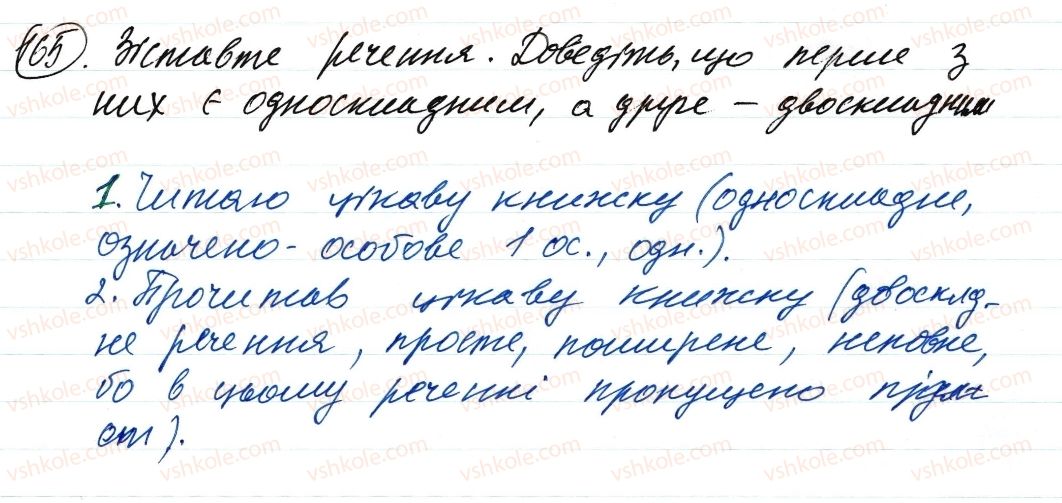 165. Зіставте речення. Доведіть, що перше з
них є односкладним, а друге – двоскладним
1. Читаю цікаву книжку (односкладне,
означено-особове 1 ос., одн.).
2. Прочитав цікаву книжку (двосклд-
не речення, просте, поширене, неповне,
бо в цьому реченні пропущено підм
ет).
vshkole.com